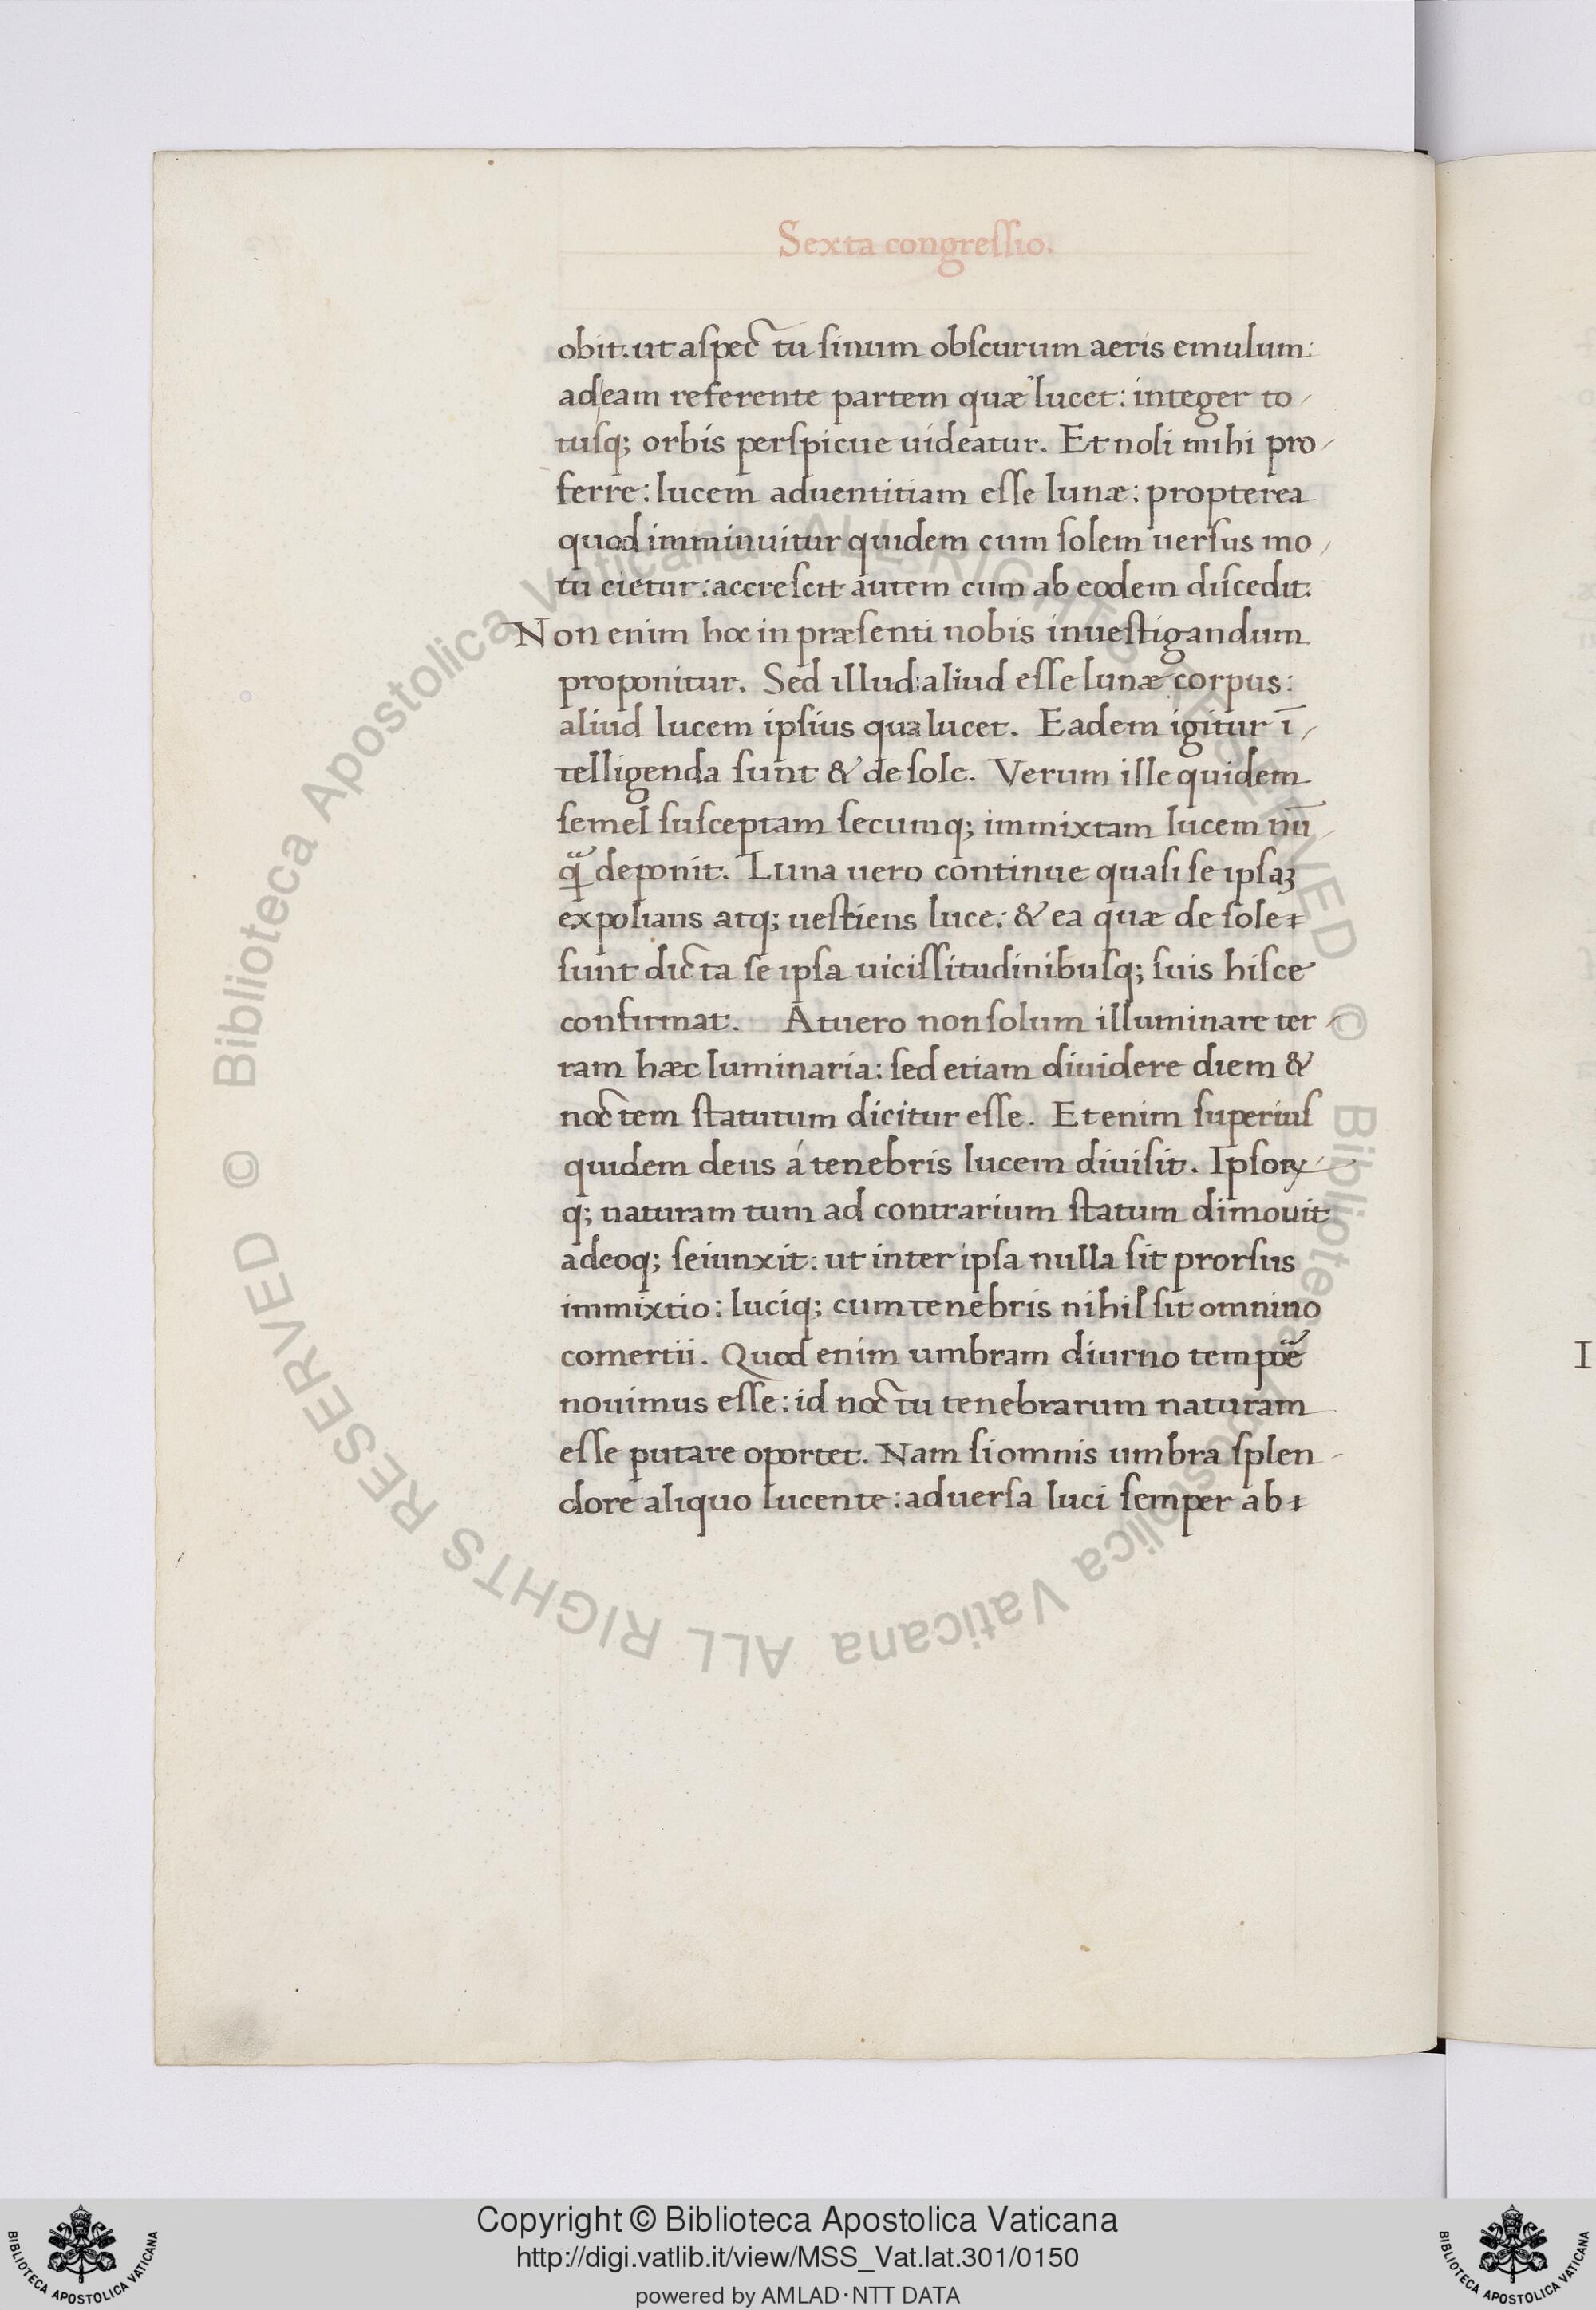 Sexta congreſſio.
obit. ut aſpectu ſinum obſcurum aeris emulum:
ad eam referente partem quæ lucet: integer to⸗
tuſq; orbis perſpicue uideatur. Et noli mihi pro⸗
ferre: lucem aduentitiam eſſe lunæ: propterea
quod imminuitur quidem cum ſolem uerſus mo⸗
tu cietur: accreſcit autem cum ab eodem diſcedit:
Non enim hoc in præſenti nobis inueſtigandum
proponitur. Sed illud: aliud eſſe lunæ corpus:
aliud lucem ipſius qua lucet. Eadem igitur ī⸗
telligenda ſunt & de ſole. Verum ille quidem
ſemel ſuſceptam ſecumq; immixtam lucem nū⸗
ꝗ̃ deponit. Luna uero continue quaſi ſe ipſaꝫ
expolians atq; ueſtiens luce: & ea quæ de ſole
ſunt dicta ſe ipſa uiciſſitudinibuſq; ſuis hiſce
confirmat. At uero non ſolum illuminare ter⸗
ram hæc luminaria: ſed etiam diuidere diem &
noctem ſtatutum dicitur eſſe. Etenim ſuperiuſ
quidem deus á tenebris lucem diuiſit. Ipſoꝝ⸗
q; naturam tum ad contrarium ſtatum dimouit
adeoq; ſeiunxit: ut inter ipſa nulla ſit prorſus
immixtio: luciq; cum tenebris nihil ſit omnino
comertii. Quod enim umbram diurno tempoẽ
nouimus eſſe: id noctu tenebrarum naturam
eſſe putare oportet. Nam ſi omnis umbra ſplen⸗
dore aliquo lucente: aduerſa luci ſemper ab
I
© Biblioteca Apostolica Vaticana ALL RIGHTS RESERVED
© Biblioteca Apostolica Vaticana ALL RIGHTS RESERVED
Copyright © Biblioteca Apostolica Vaticana
http://digi.vatlib.it/view/MSS_Vat.lat.301/0150
powered by AMLAD·NTT DATA
BIBLIOTECA APOSTOLICA VATICANA
BIBLIOTECA APOSTOLICA VATICANA